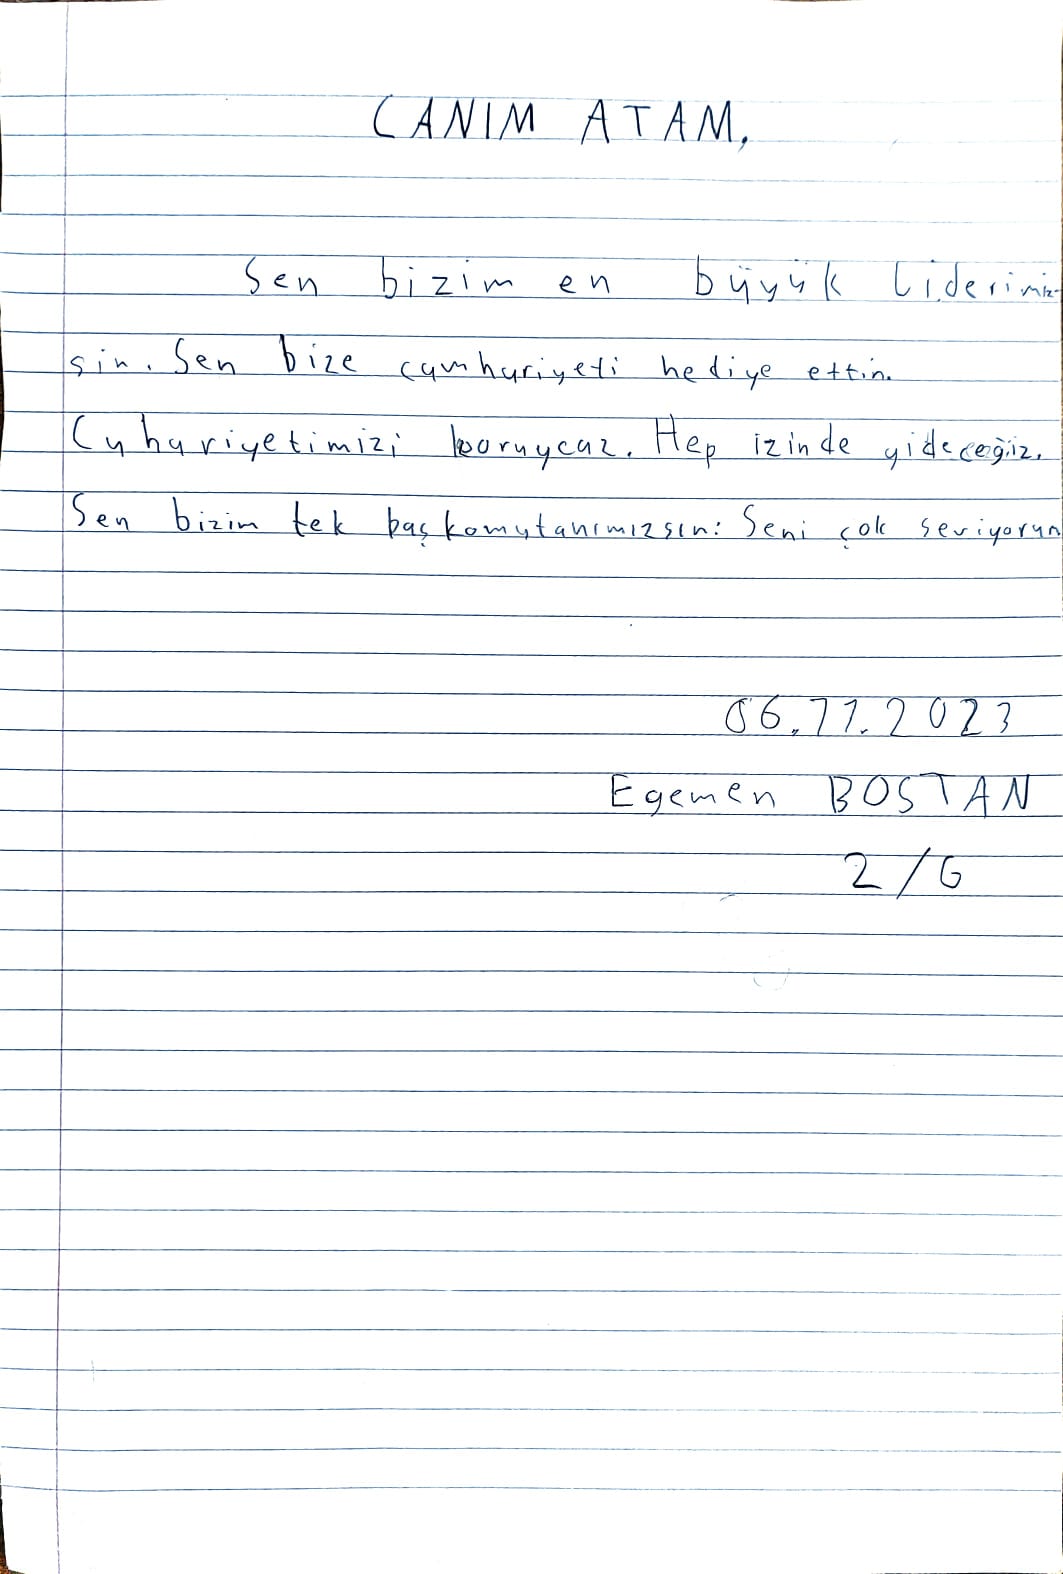 CANIM ATAM,
Sen bizim en büyük liderimiz-
sin. Sen bize cumhuriyeti hediye ettin.
Cuhuriyetimizi koruycaz. Hep izinde gideceğiz.
Sen bizim tek başkomutanımızsın. Seni çok seviyorum
06.11.2023
Egemen BOSTAN
2/G